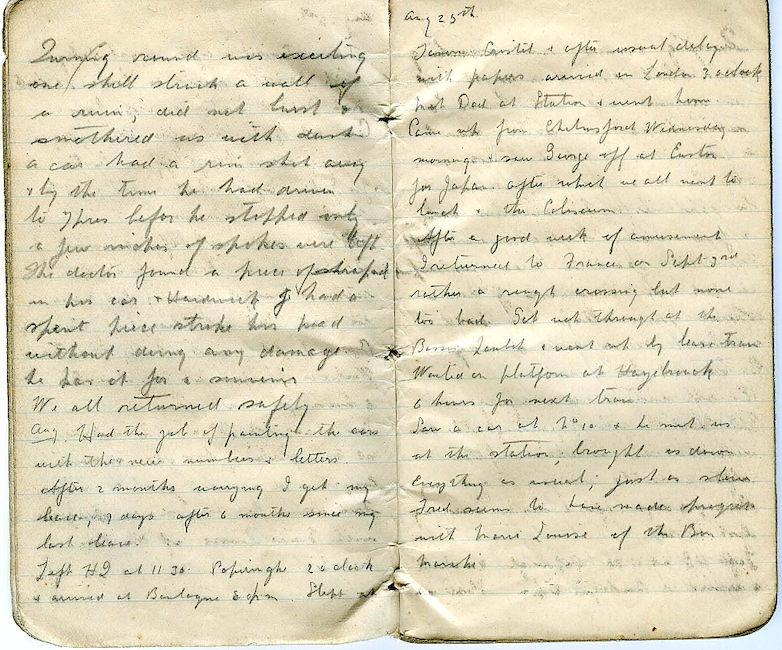 Turning round was exciting
one shell struck a wall of
a ruin, did not burst &
smothered us with dust
a car had a rim shot away
& by the time he had driven
to Ypres befor he stopped only
a few inches of spokes were left
The doctor found a piece of shrapnel
in his car & Hardwick J had a
spent piece strike his head
without doing any damage
he has it for a souvenir
We all returned safely
Aug. Had the job of painting the cars
with the new numbers & letters.
After 2 months worrying I get my
leave, 9 days after 6 months since my
last leave.
Left HQ at 11.30. Poperinghe 2 oclock
& arrived at Boulogne 8 pm. Slept at
Aug 25th.
& after usual delay
with papers arrived in London 3 oclock
met Dad at Station & went home.
Came up from Chelmsford Wednesday
morning & saw George off at Euston
for Japan after which we all went to
lunch & the Coliseum.
After a good week of amusement
I returned to France on Sept 3rd
rather a rough crossing but none
too bad. Got up through at the
Bassin & went up by leave train
Waited on platform at Hazebrouck
6 hours for next train
Saw a car at No 10 & he met us
at the station, brought us down
Everything as usual, just as slow
Fred seems to have made progress
with Marie Louise of the Bon
Marche